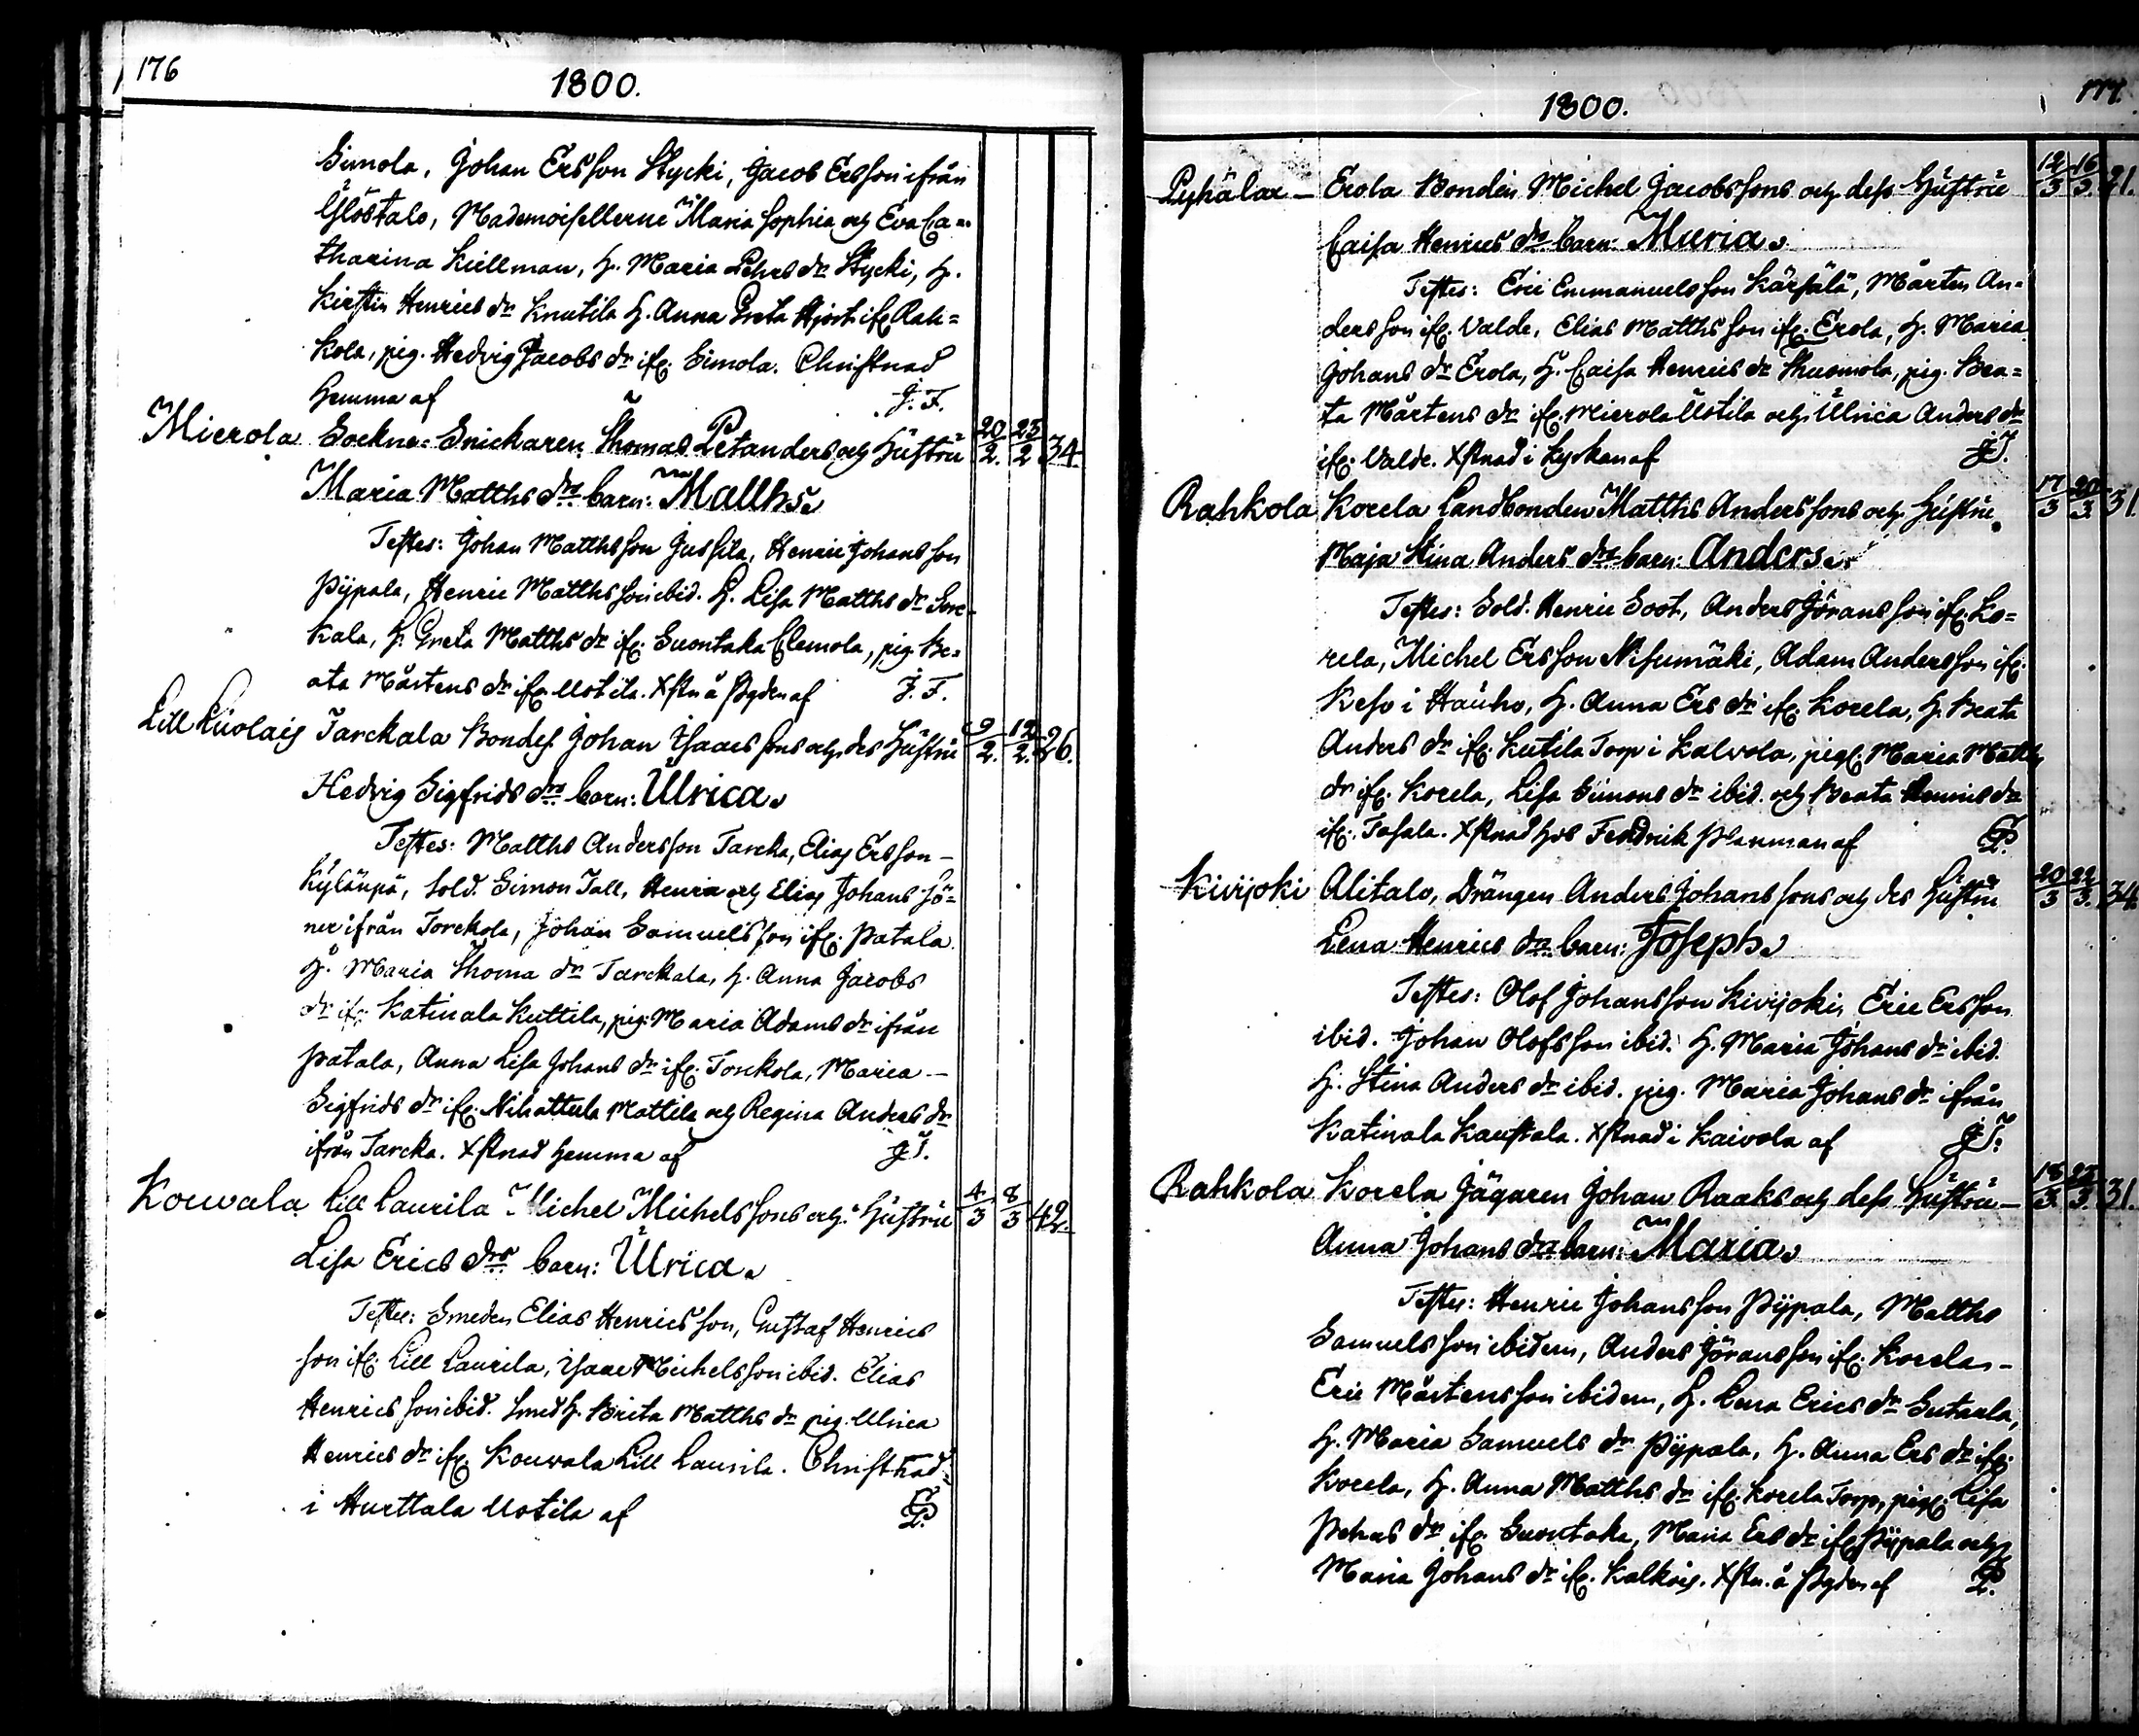 176
1800.
Simola, Johan Ersson Stycki, Jacob Ersson ifrån
Ylöstalo, Mademoisellerne Maria Sophia och Eva Ca=
tharina Kullman, H. Maria Pehrs dr Stycki, H.
Kirstin Henrics dr Knutila H. Anna Greta Hjort ifr. Rah=
kola, pig. Hedvig Jacobs dr ifr. Simola. Christnad
hemma af J. F.
Mierola Sockne-Snickaren Thomas Petanders och Hustru 20/2. 23/2 34.
Maria Matths drs barn: Matths.
Testes: Johan Matthsson Jussila, Henric Johansson
Pypala, Henric Matthsson ibid. H. Lisa Matths dr
kala, H. Greta Matths dr ifr. Suontaka Clemola, pig. Be=
ata Mårtens dr ifr. Uotila. Xstn å Bygden af J. F.
Lill Luolais Tarckala Bondes Johan Isaacs sons och des Hustru 9/2. 12/2. 26.
Hedvig Sigfrids drs barn: Ulrica.
Testes: Matths Andersson Tarcka, Elias Ersson
Kylänpä, Sold. Simon Tall, Henric och Elias Johans Sö=
ner ifrån Torckola, Johan Samuelsson ifr. Patala
H. Maria Thoma dr Tarckala, H. Anna Jacobs
dr ifr. Katinala Kuttila, pig: Maria Adams dr ifrån
Patala, Anna Lisa Johans dr ifr. Torckola, Maria
Sigfrids dr ifr. Nihattula Mattila och Regina Anders dr
ifrån Tarcka. Xstnad hemma af J. F.
Kouvala Lill Laurila Michel Michelssons och Hustru 4/3 8/3 42.
Lisa Erics drs barn: Ulrica.
Testes: Smeden Elias Henricsson, Gustaf Henrics
son ifr. Lill Laurila, Isaac Michelsson ibid. Elias
Henricsson ibid. Smed H. Brita Matths dr pig. Ulrica
Henrics dr ifr. Kouvala Lill Laurila. Christnad
i Hurttala Uotila af
1800.
177.
Pyhälax Erola Bonden Michel Jacobssons och dess Hustru 12/3 16/3. 21.
Caisa Henrics drs barn: Maria.
Testes: Eric Emmanuelsson Kärpälä, Mårten An=
dersson ifr. Valde, Elias Matthsson ifr. Erola, H. Maria
Johans dr Erola, H. Caisa Henrics dr Thuomola, pig. Bea=
ta Mårtens dr ifr. Mierola Uotila och Ulrica Anders dr
ifr. Valde. Xstnad i Kyrkan af J. F.
Rahkola Korela Landbonden Matths Anderssons och Hustru 17/3 20/3. 31.
Maja Stina Anders drs barn: Anders.
Testes: Sold. Henric Soot, Anders Göransson ifr. Ko=
rela, Michel Ersson Nisumäki, Adam Andersson ifr.
Keso i Hauho, H. Anna Ers dr ifr. Korela, H. Beata
Anders dr ifr. Kutila Torp i Kalvola, pig. Maria Matths
dr ifr. Korela, Lisa Simons dr ibid. och Beata Henrics dr
ifr. Tasala. Xstnad hos Fendrick Planman af
Kivijoki Alitalo, Drängen Anders Johanssons och des Hustru 20/3 22/3. 34.
Lena Henrics drs barn: Joseph.
Testes: Olof Johansson Kivijoki, Eric Ersson
ibid. Johan Olofsson ibid. H. Maria Johans dr ibid.
H. Stina Anders dr ibid. pig. Maria Johans dr ifrån
Katinala Kaustala. Xstnad i Kaivola af J. F.
Rahkola Korela Jägaren Johan Raaks och dess Hustru 18/3. 23/3. 31.
Anna Johans drs barn: Maria.
Testes: Henric Johansson Pypala, Matths
Samuelsson ibidem, Anders Göransson ifr. Korela
Eric Mårtensson ibidem, H. Lena Erics dr Sutarla,
H. Maria Samuels dr Pypala, H. Anna Ers dr ifr.
Korela, H. Anna Matths dr ifr. Korela Torp, pig. Lisa
Pehrs dr ifr. Suontaka, Maria Ers dr ifr. Pypala och
Maria Johans dr ifr. Kalkois. Xstn. å Bygden af